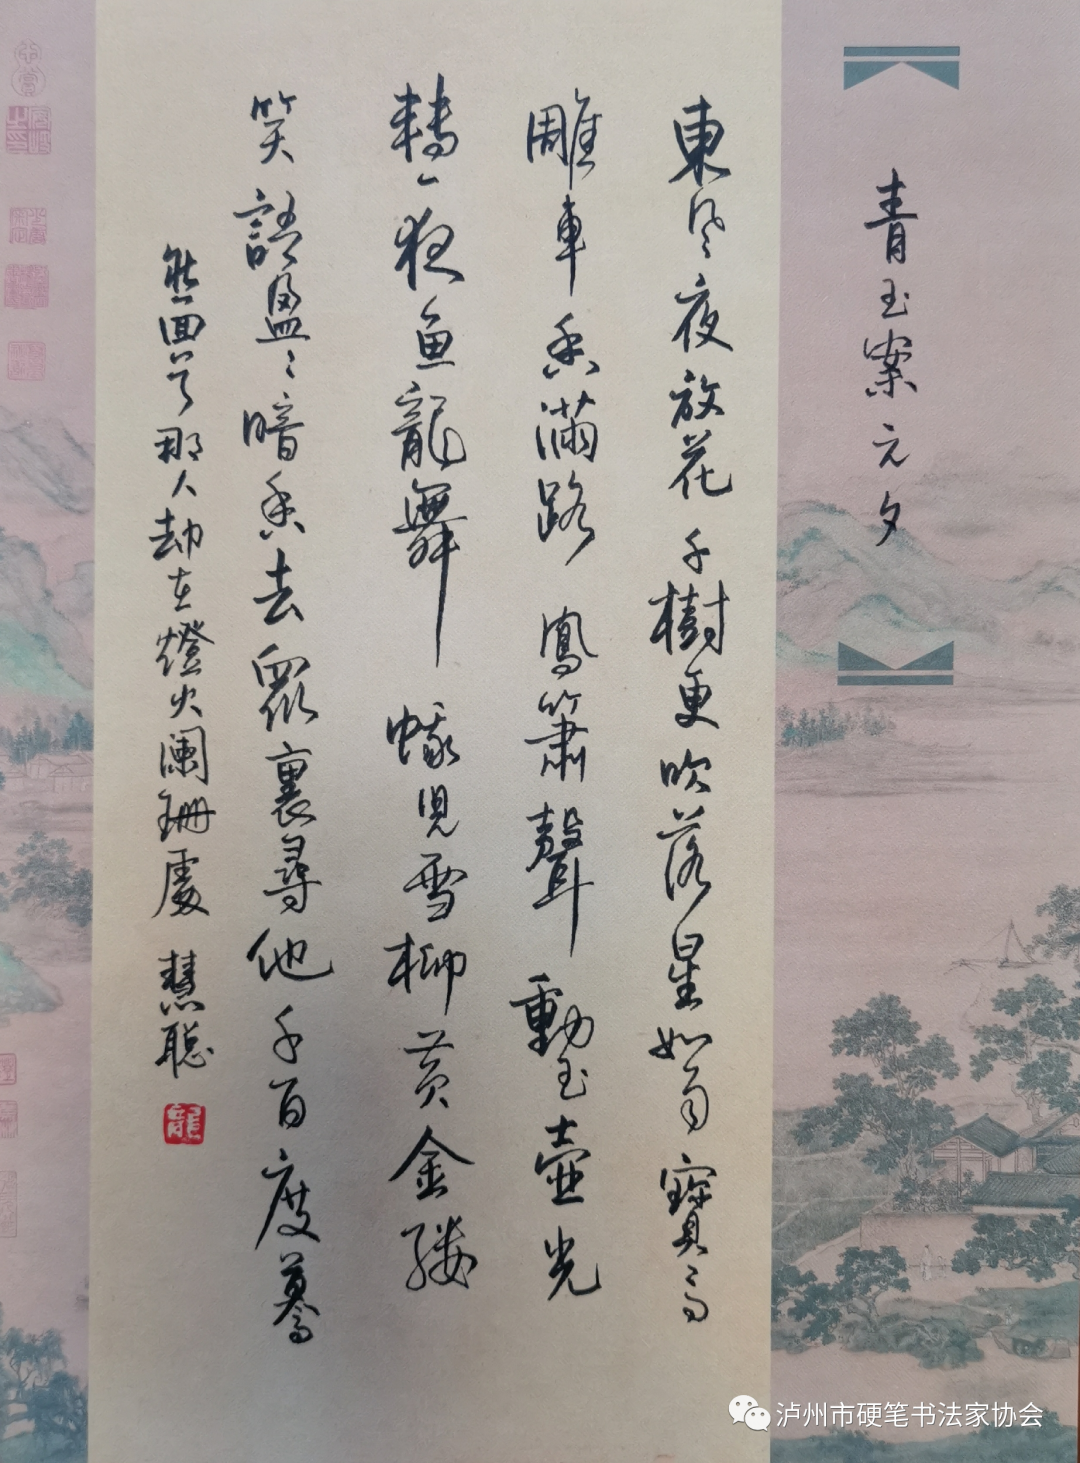 青玉案元夕
東風夜放花千樹更吹落星如雨寶馬
雕車香滿路鳳簫聲動玉壺光
轉一夜魚龍舞蛾兒雪柳黃金縷
笑語盈々暗香去眾裏尋他千百度驀
然回首那人却在燈火阑珊處 慧聪
龍
泸州市硬笔书法家协会